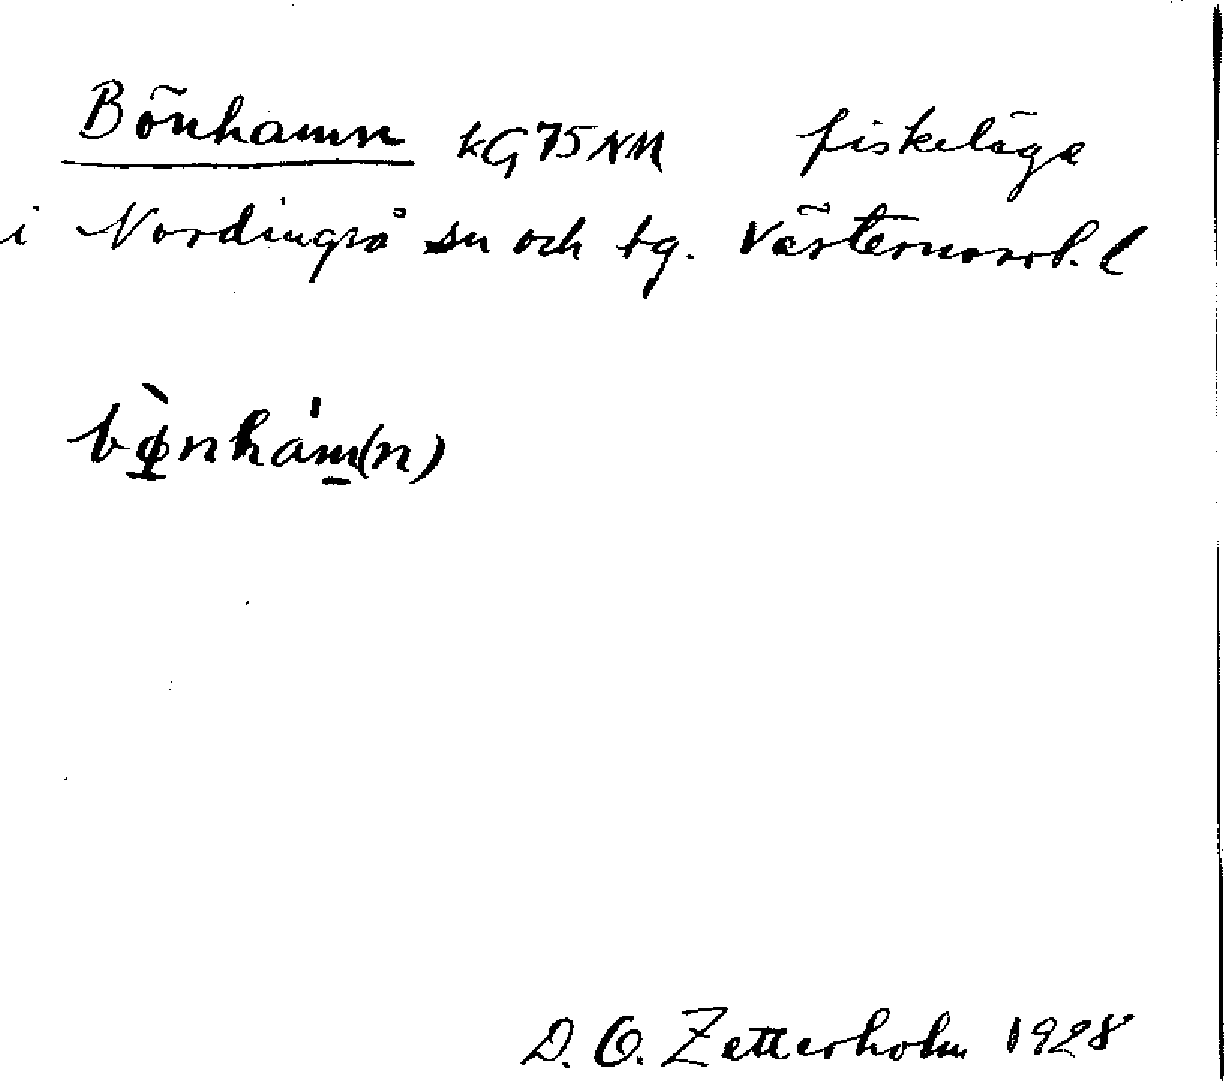 Bönhamn kG75NM fiskeläge
i Nordingrå sn och tg. Västernorrl. l
bø̀nhám(n)
D. O. Zetterholm 1928